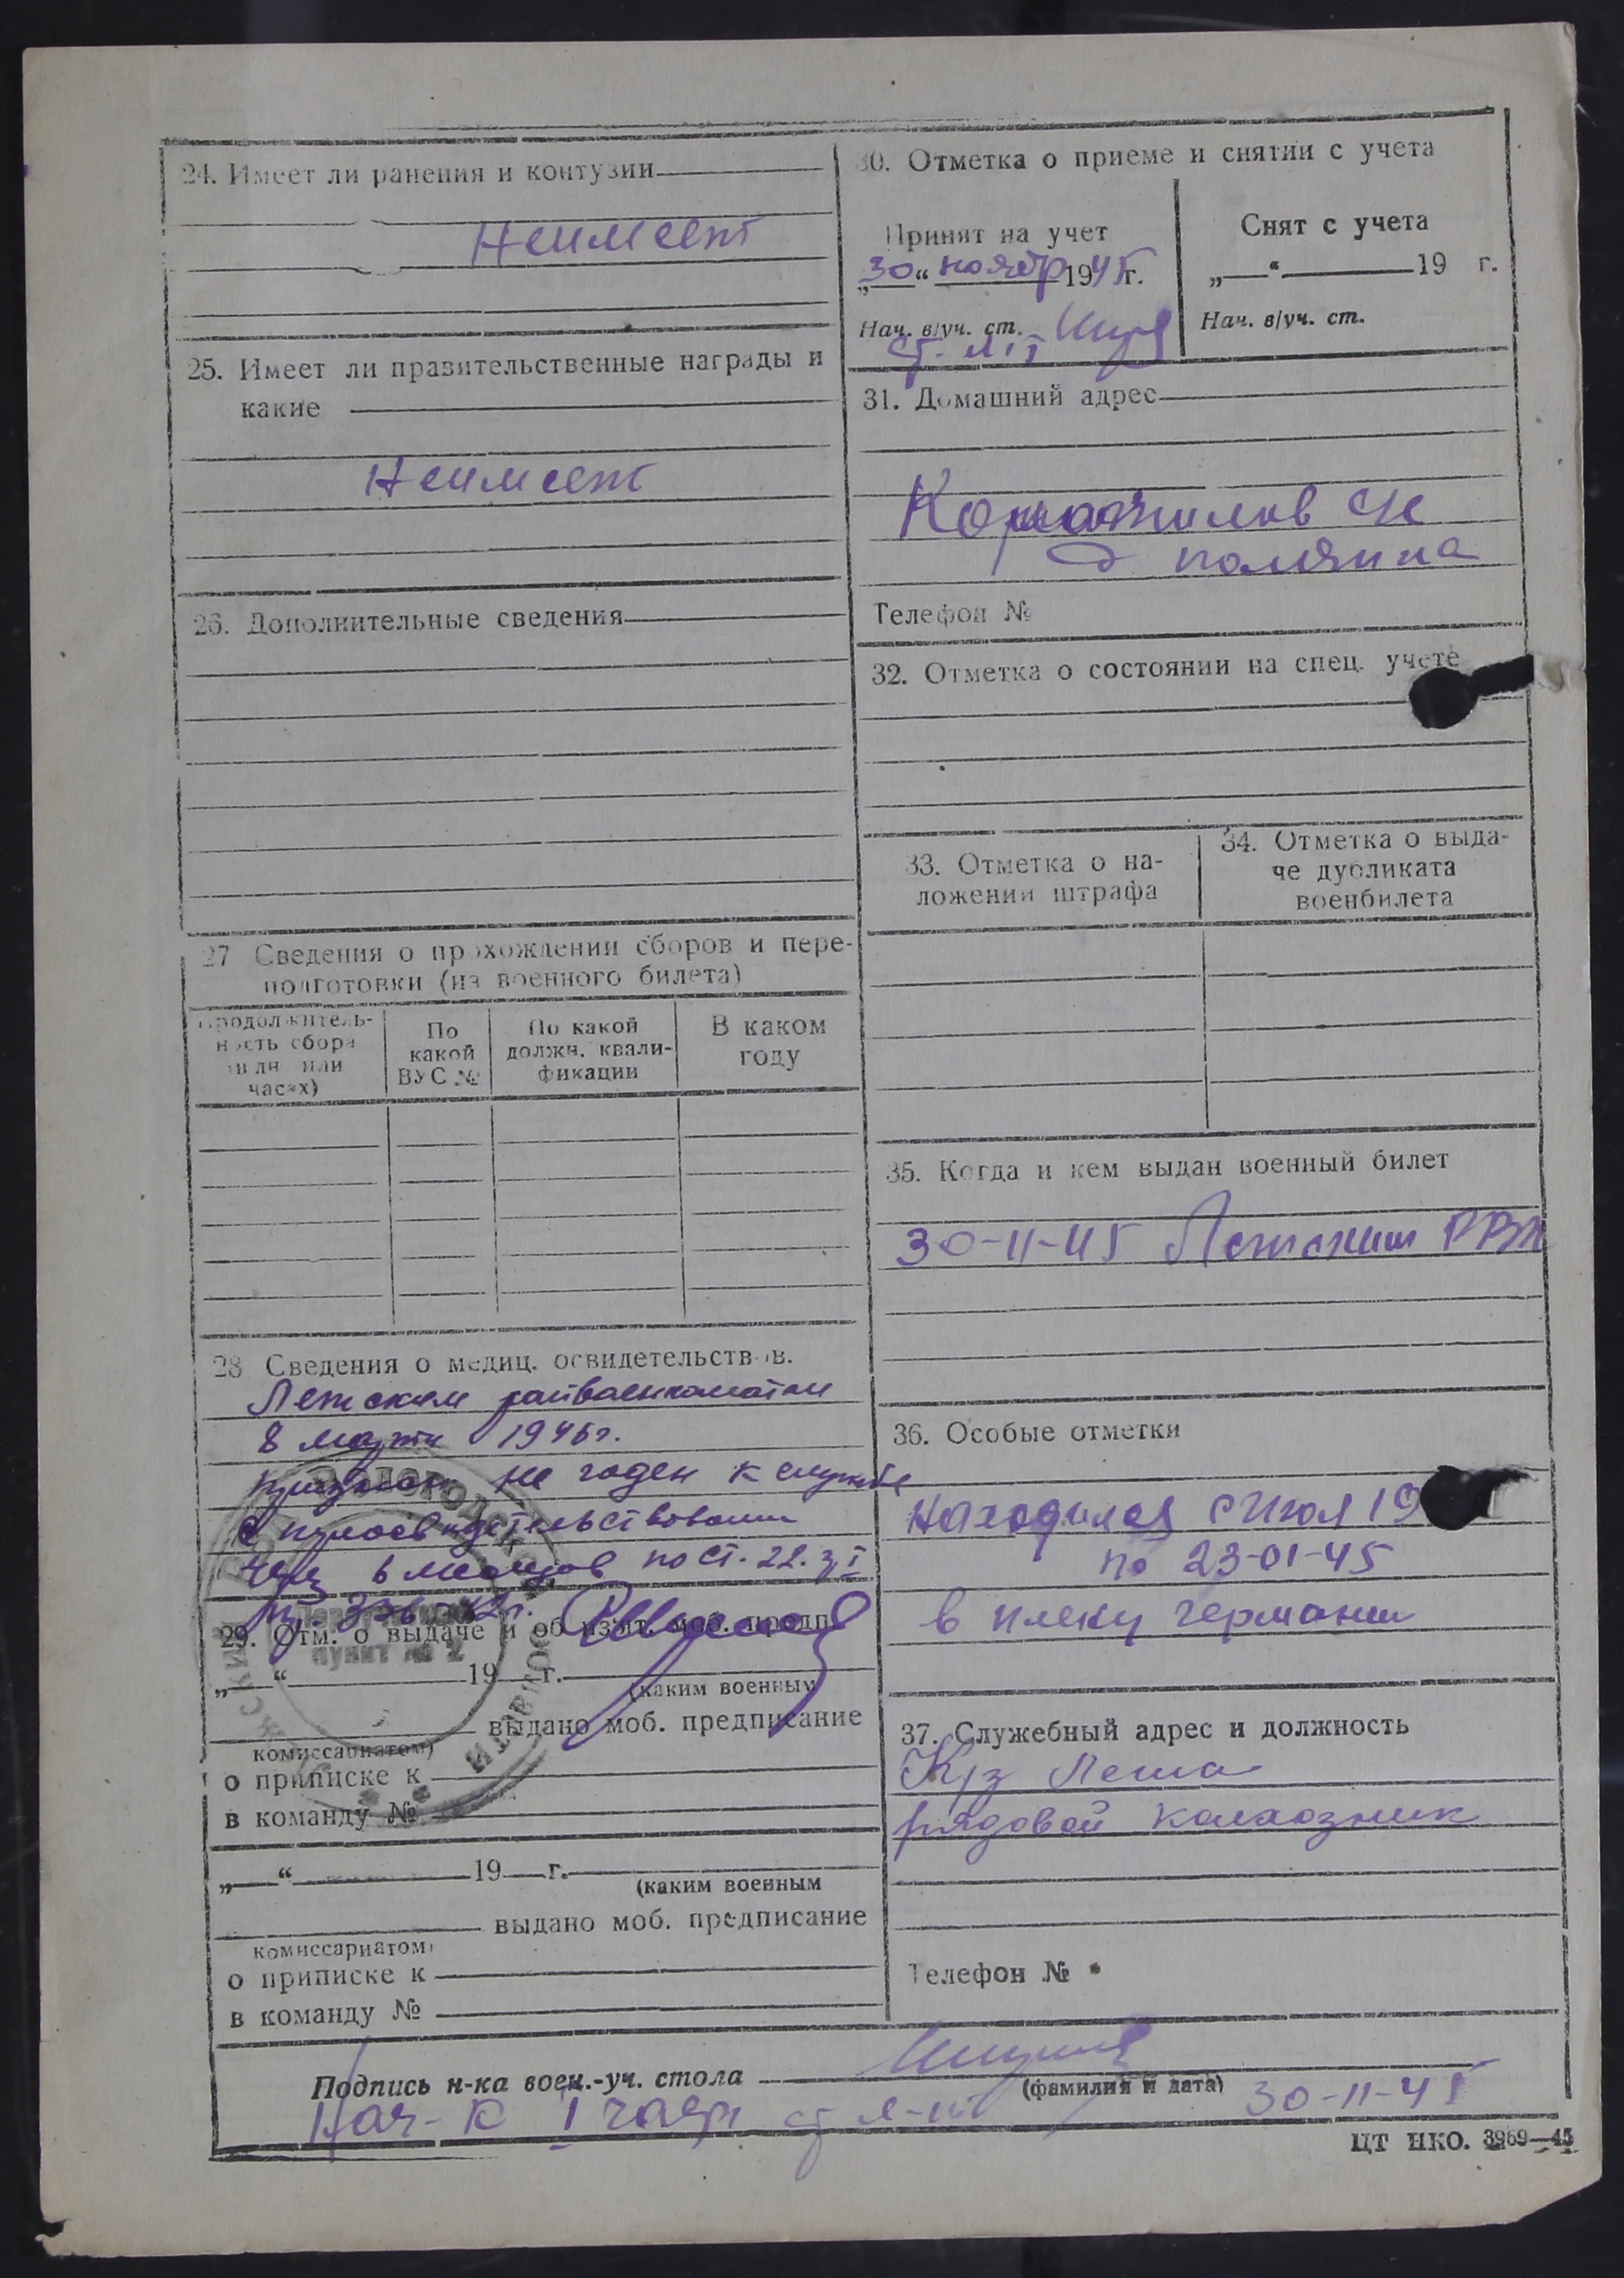 24. Имеет ли ранения и контузии
Неимеет
25. Имеет ли правительственные награды и
какие
Неимеет
26. Дополнительные сведения
27 Сведения о прохождении сборов и пере-
подготовки (из военного билета)
Продолжитель-
ность сбора
(в дн. или
часах)
По
какой
ВУС №
По какой
должн. квали-
фикации
В каком
году
28 Сведения о медиц. освидетельствов.
Летским райвоенкоматом
8 марта 1946г.
признан не годен к службе
с переосвидетельствованием
через 6 месяцев по ст. 22. гр I
пр. 336-42г.
29. Отм. о выдаче и об изъят. моб. предп.
„ “ 19 г.
(каким военным
выдано моб. предписание
комиссариатом)
о приписке к
в команду №
пункт № 2
„ “ 19 г.
(каким военным
выдано моб. предписание
комиссариатом)
о приписке к
в команду №
30. Отметка о приеме и снятии с учета
Принят на учет
„30“ ноябр 1945г.
Нач. в/уч. ст.
ст. л-т
Снят с учета
„ “ 19 г.
Нач. в/уч. ст.
31. Домашний адрес
с/с
д поляна
Телефон №
32. Отметка о состоянии на спец. учете
33. Отметка о на-
ложении штрафа
34. Отметка о выда-
че дубликата
военбилета
35. Когда и кем выдан военный билет
30-11-45 Летским РВК
36. Особые отметки
Находился с Июля 19
по 23-01-45
в плену германии
37. Служебный адрес и должность
К/з Летка
рядовой колхозник
Телефон №
Подпись н-ка воен.-уч. стола
(фамилия и дата)
Нач-к I части ст л-нт 30-11-45
ЦТ НКО. 3969—45